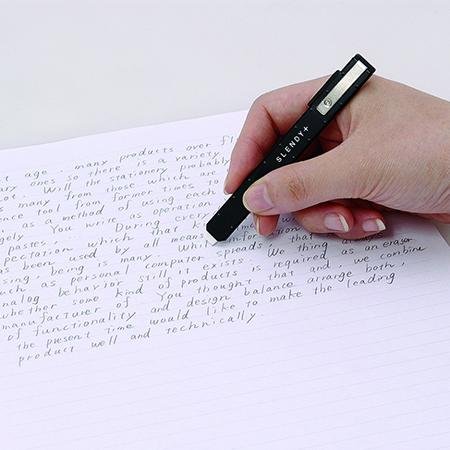 t age.. many products over fl
ary ones so there is a variety
ot. Will the stationery probably
many from those which are
ence tool from former times.
as a method of using each
gely. You write as operation
pastes. During every
spectation which that k
as been used by all means Wh information
sing being is many spreads that
uch as personal computer We thing around
analog behavior still it exists. as an eraser
whether some kind of products is required and we combine
manufacturer of You thought that both,
of functionality and design balance arrange
the present time would like to make the leading
product well and technically.
SLENDY+